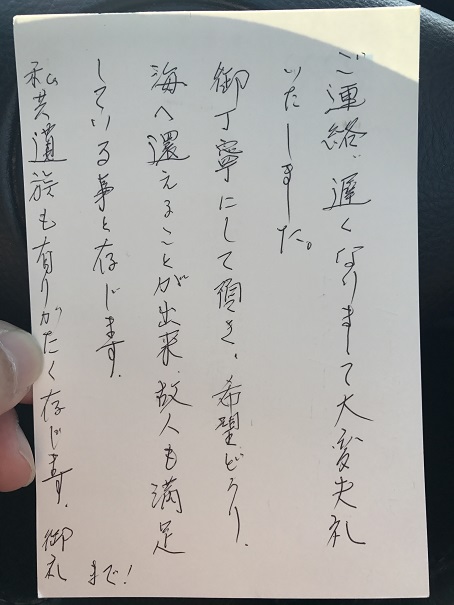 ご連絡、遅くなりまして大変失礼
いたしました。
御丁寧にして頂き、希望どうり、
海へ還えることが出来、故人も満足
している事と存じます。
私共遺族も有りがたく存じます。御礼
まで!